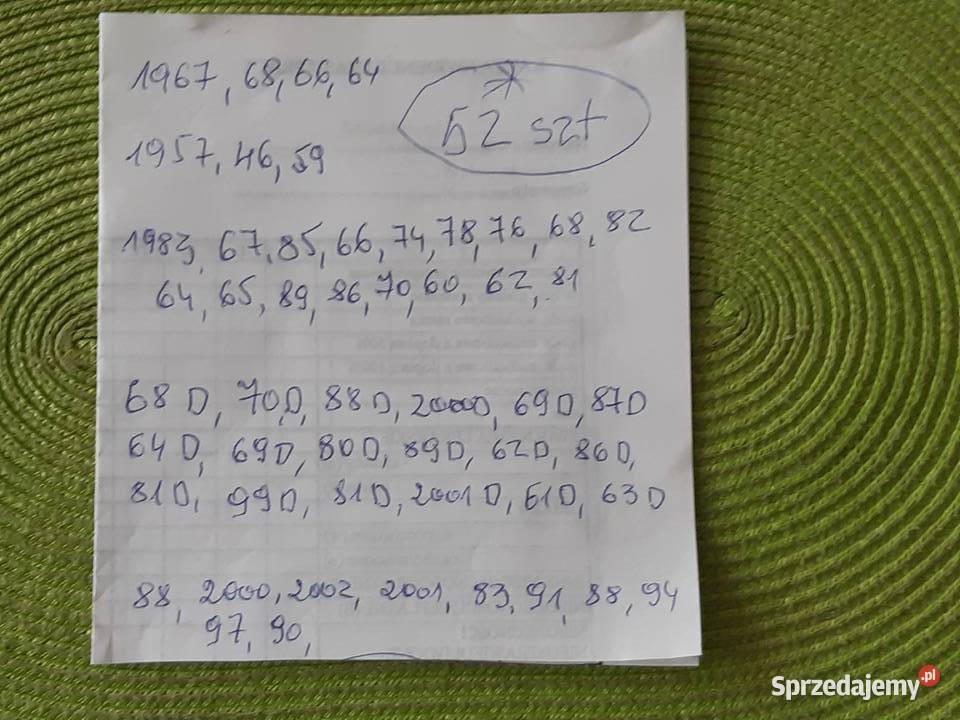 1967, 68, 66, 64
* 52 szt
1957, 46, 59
1983, 67, 85, 66, 74, 78, 76, 68, 82
64, 65, 89, 86, 70, 60, 62, 81
68 D, 70 D, 88 D, 2000D, 69 D, 87 D
64 D, 69 D, 80 D, 89 D, 62 D, 86 D,
81 D, 99 D, 81 D, 2001 D, 61 D, 63 D
88, 2000, 2002, 2001, 83, 91, 88, 94
97, 90,
Sprzedajemy.pl